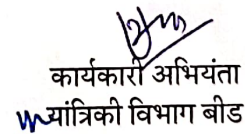 कार्यकारी अभियंता
यांत्रिकी विभाग बीड